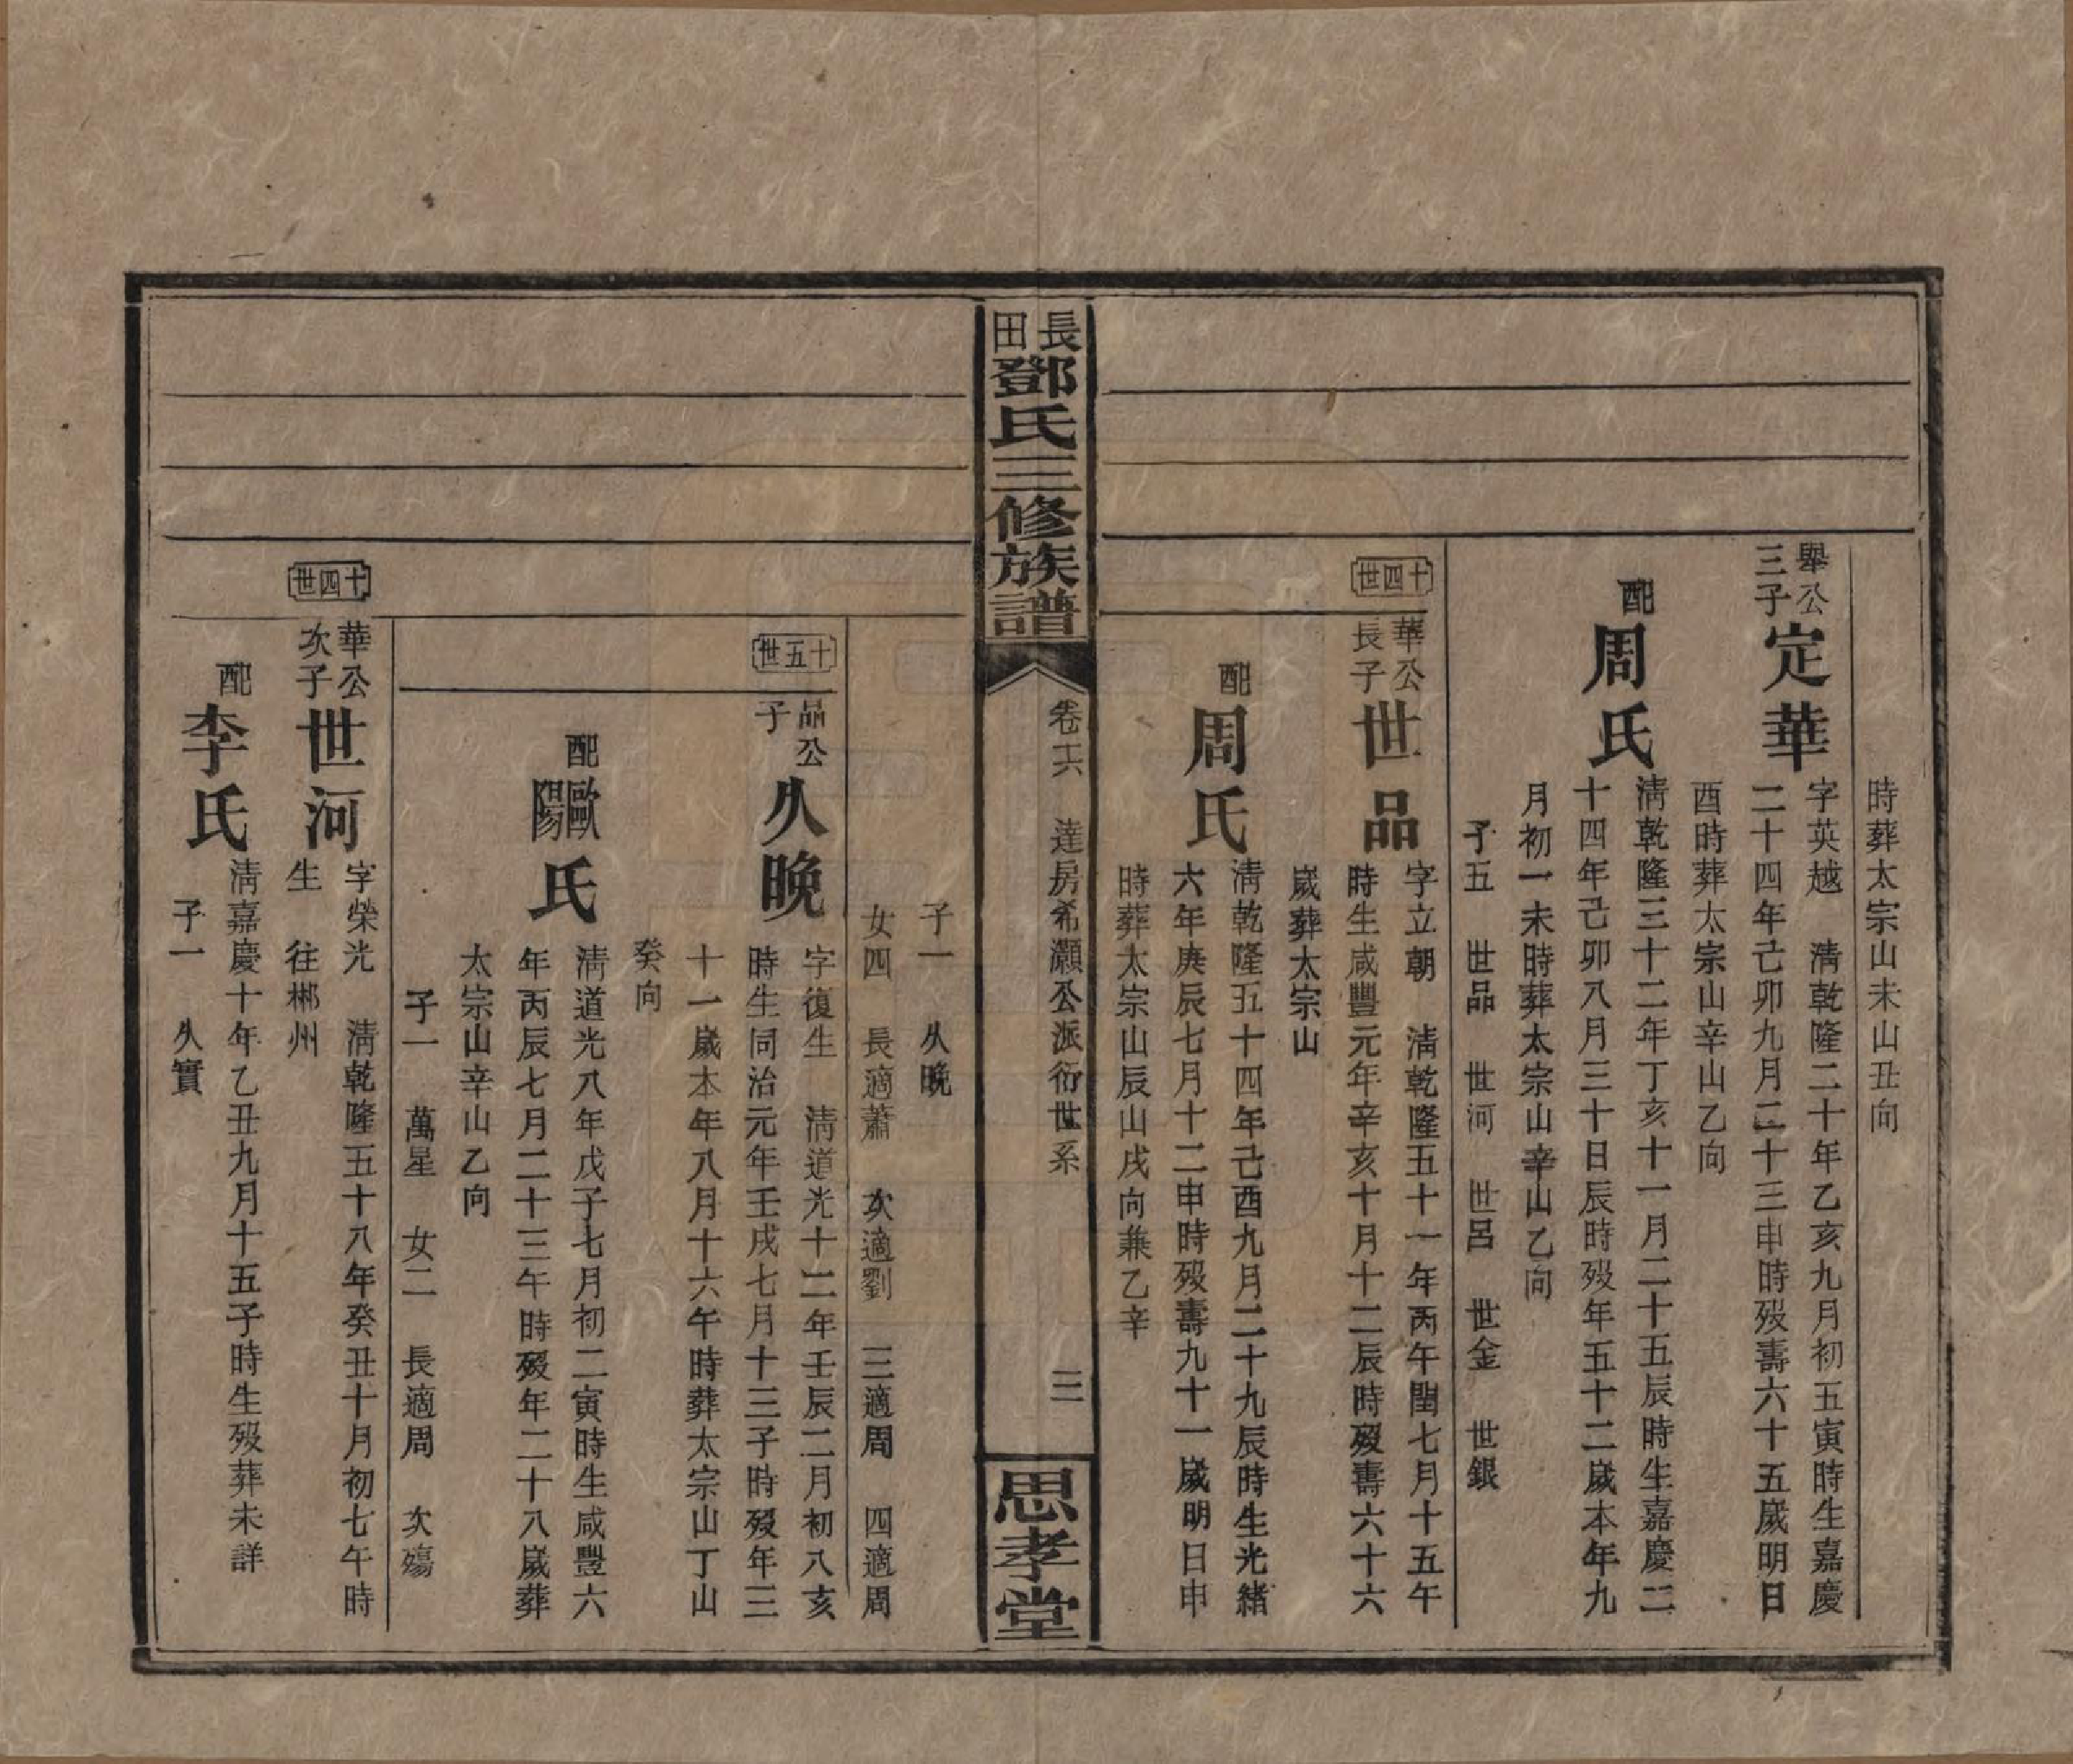 時葬太宗山未山丑向
舉公
三子
定華
字英越　清乾隆二十年乙亥九月初五寅時生嘉慶
二十四年己卯九月二十三申時歿壽六十五歲明日
酉時葬太宗山辛山乙向
配
周氏
清乾隆三十二年丁亥十一月二十五辰時生嘉慶二
十四年己卯八月三十日辰時歿年五十二歲本年九
月初一未時葬太宗山辛山乙向
子五　世品　世河　世呂　世金　世銀
十四世
華公
長子
世品
字立朝　清乾隆五十一年丙午閏七月十五午
時生咸豐元年辛亥十月十二辰時歿壽六十六
歲葬太宗山
配
周氏
清乾隆五十四年己酉九月二十九辰時生光緒
六年庚辰七月十二申時歿壽九十一歲明日申
時葬太宗山辰山戌向兼乙辛
長田
鄧氏三修族譜
卷十六　達房希灝公派衍世系
三
思孝堂
子一　久晚
女四　長適蕭　次適劉　三適周　四適周
十五世
品公
子
久晚
字復生　清道光十二年壬辰二月初八亥
時生同治元年壬戌七月十三子時歿年三
十一歲本年八月十六午時葬太宗山丁山
癸向
配
歐陽氏
清道光八年戊子七月初二寅時生咸豐六
年丙辰七月二十三午時歿年二十八歲葬
太宗山辛山乙向
子一　萬星　女二　長適周　次殤
十四世
華公
次子
世河
字榮光　清乾隆五十八年癸丑十月初七午時
生　往郴州
配
李氏
清嘉慶十年乙丑九月十五子時生歿葬未詳
子一　久實